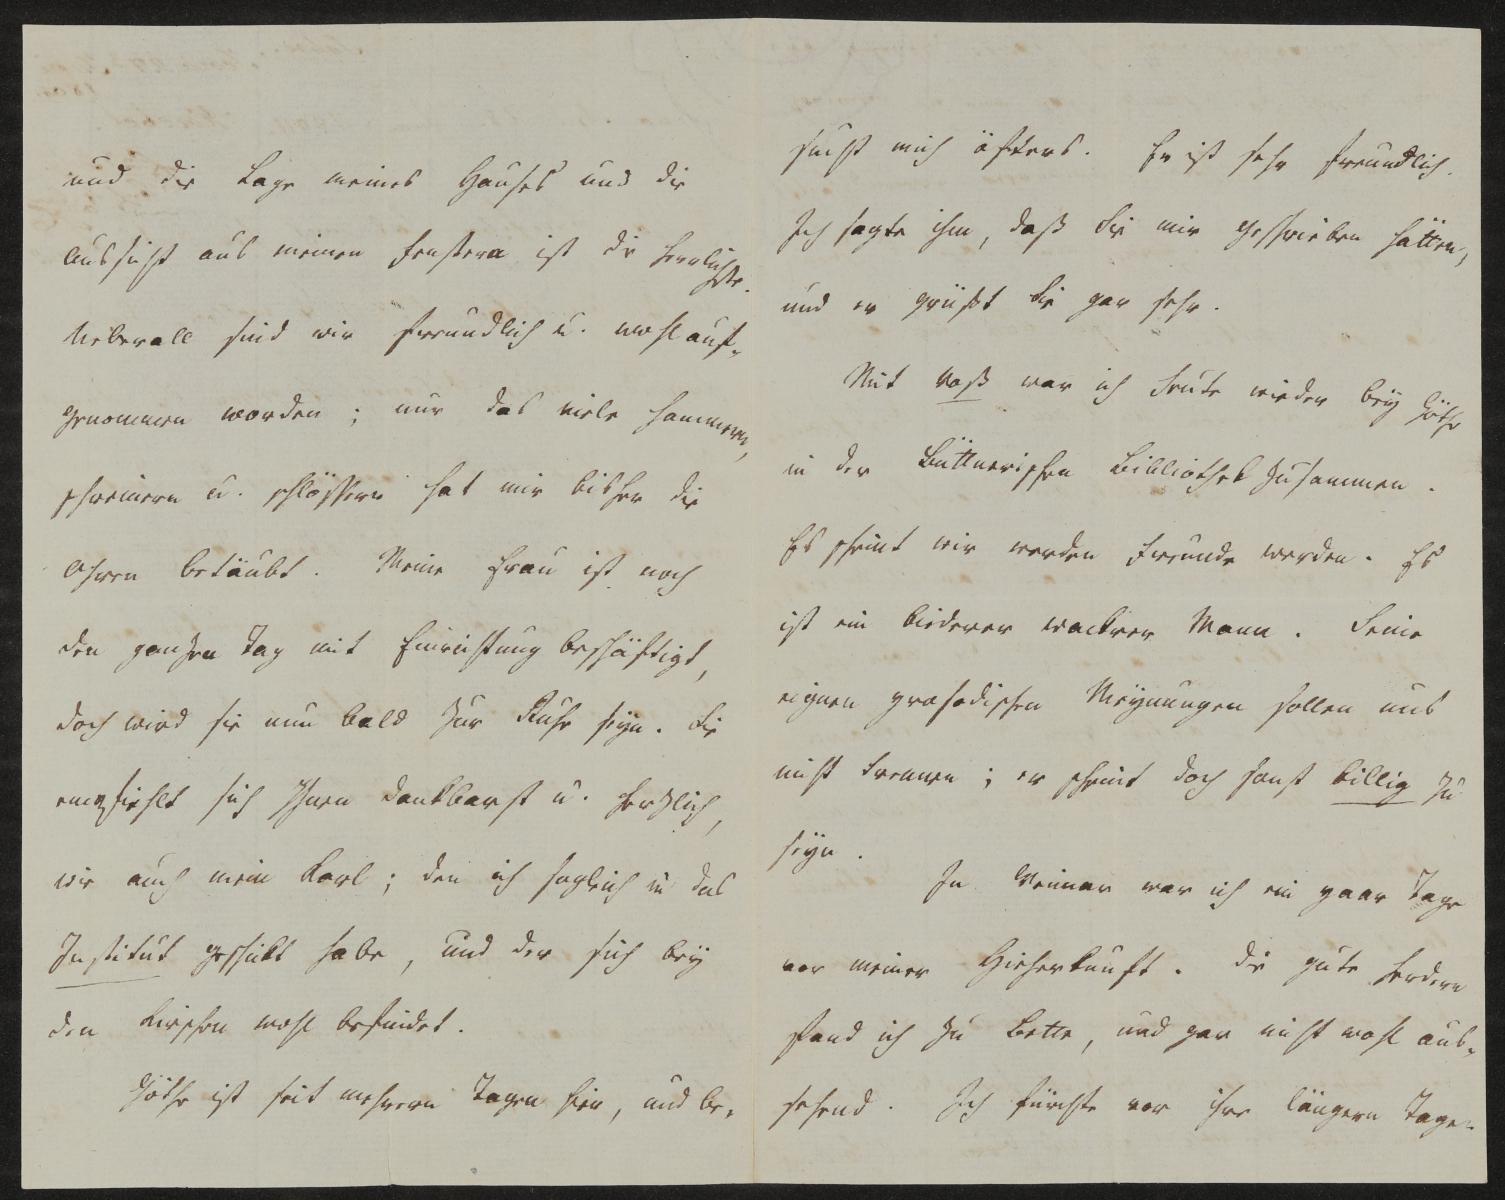 und die Lage meines Hauses und die
Aussicht aus meinen Fenstern ist die herrlichste.
Ueberall sind wir freundlich u. wohl auf-
genommen worden; nur das viele hammern,
schreinern u. schlössern hat mir bisher die
Ohren betäubt. Meine Frau ist noch
den ganzen Tag mit Einrichtung beschäftigt,
doch wird sie nun bald zur Ruhe seyn. Sie
empfiehlt sich Ihnen dankbarst u. herzlich,
wie auch mein Karl; den ich sogleich in das
Institut geschikt habe, und der sich bey
den Kirschen wohl befindet.
Göthe ist seit mehrern Tagen hier, und be-
sucht mich öfters. Er ist sehr freundlich.
Ich sagte ihm, daß Sie mir geschrieben hätten,
und er grüßt Sie gar sehr.
Mit Voß war ich heute wieder bey Göthe
in der Büttnerischen Bibliothek zusammen.
Es scheint wir werden Freunde werden. Es
ist ein biederer wackrer Mann. Seine
eignen prosodischen Meynungen sollen uns
nicht trennen; er scheint doch sonst billig zu
seyn.
In Weimar war ich ein paar Tage
vor meiner Hieherkunft. Die gute Herdern
fand ich zu Bette, und gar nicht wohl aus-
sehend. Ich fürchte vor ihre längern Tage.